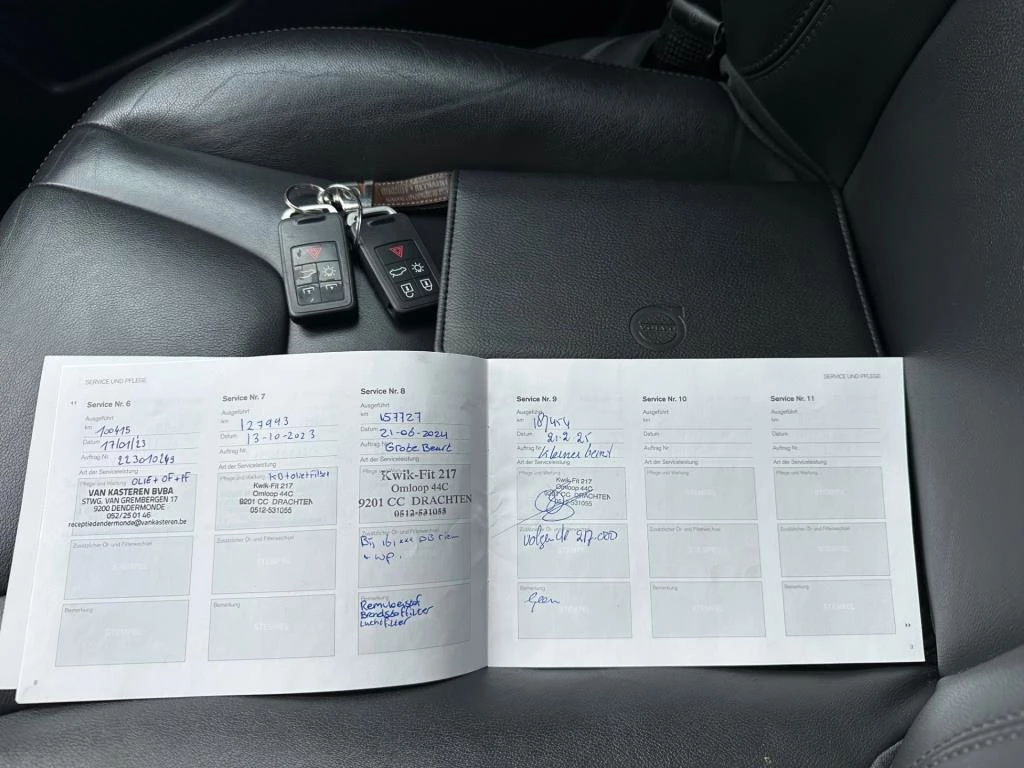 VOLVO
SERVICE UND PFLEGE
Service Nr. 6
Ausgeführt
km 100415
Datum 17/01/23
Auftrag Nr.
Art der Serviceleistung
Pflege und Wartung OLIE + OF + PF
VAN KASTEREN BVBA
STWG. VAN GREMBERGEN 17
9200 DENDERMONDE
052/25 01 46
receptiedendermonde@vankasteren.be
Zusätzlicher Öl- und Filterwechsel
STEMPEL
Bemerkung
STEMPEL
Service Nr. 7
Ausgeführt
km 127993
Datum 13-10-2023
Auftrag Nr.
Art der Serviceleistung
Pflege und Wartung
Kwik-Fit 217
Omloop 44C
9201 CC DRACHTEN
0512-531055
Zusätzlicher Öl- und Filterwechsel
STEMPEL
Bemerkung
STEMPEL
Service Nr. 8
Ausgeführt
km 157727
Datum 21-06-2024
Auftrag Nr. Grote Beurt
Art der Serviceleistung
Kwik-Fit 217
Omloop 44C
9201 CC DRACHTEN
0512-531055
Zusätzlicher Öl- und Filterwechsel
Bij
+ wp.
Bemerkung
Remvloeistof
Brandstoffilter
Luchtfilter
8
SERVICE UND PFLEGE
Service Nr. 9
Ausgeführt
km
Datum 21-2-25
Auftrag Nr. kleine beurt
Art der Serviceleistung
Pflege und Wartung
Kwik-Fit 217
Omloop 44C
9201 CC DRACHTEN
0512-531055
Zusätzlicher Öl- und Filterwechsel
217.000
Bemerkung
Geen
Service Nr. 10
Ausgeführt
km
Datum
Auftrag Nr.
Art der Serviceleistung
Pflege und Wartung
STEMPEL
Zusätzlicher Öl- und Filterwechsel
STEMPEL
Bemerkung
STEMPEL
Service Nr. 11
Ausgeführt
km
Datum
Auftrag Nr.
Art der Serviceleistung
Pflege und Wartung
STEMPEL
Zusätzlicher Öl- und Filterwechsel
STEMPEL
Bemerkung
STEMPEL